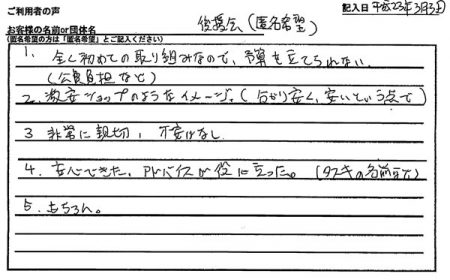 ご利用者の声
記入日 平成23年3月3日
お客様の名前or団体名 後援会(匿名希望)
(匿名希望の方は「匿名希望」とご記入ください)
1. 全く初めての取り組みなので、予算も立てられない
(公費負担など)
2. 激安ショップのようなイメージ。(分かり安く、安いという点で)
3 非常に親切、不安はなし
4. 安心できた、アドバイスが役に立った。(タスキの名前まで)
5. もちろん。